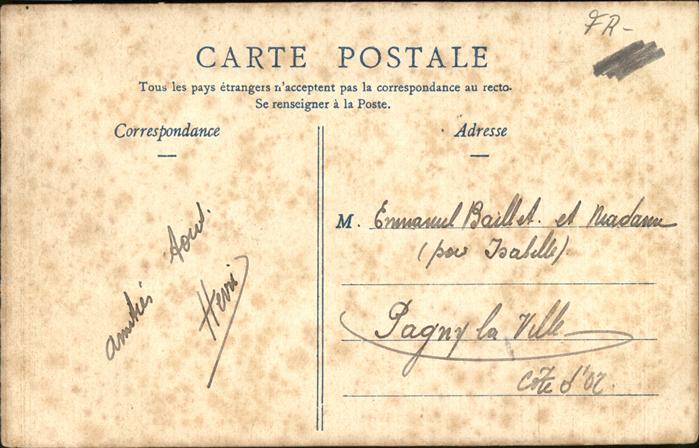 FR-
CARTE POSTALE
Tous les pays étrangers n'acceptent pas la correspondance au recto.
Se renseigner à la Poste.
Correspondance
Adresse
amitiés
Henri
M. Emmanuel Baillet. et Madame
(pour Isabelle)
Pagny la Ville
Côte d'Or.